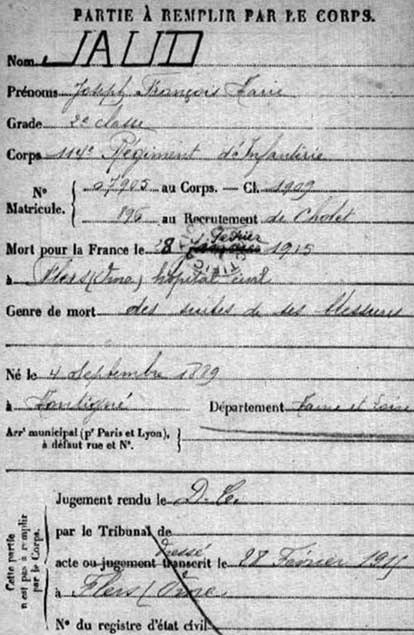 PARTIE À REMPLIR PAR LE CORPS.
Nom JAUD
Prénoms Joseph François Marie
Grade 2e classe
Corps 114e Régiment d'Infanterie
N° Matricule. 07905 au Corps. — Cl. 1909
896 au Recrutement de Cholet
Mort pour la France le 28 Février 1915
à Flers (Orne) hôpital civil
Genre de mort des suites de ses blessures
Né le 4 Septembre 1889
à Département Maine et Loire
Arrt municipal (pr Paris et Lyon),
à défaut rue et N°.
Cette partie n'est pas à remplir par le Corps.
Jugement rendu le D.C.
par le Tribunal de
acte ou jugement transcrit dressé le 28 Février 1915
à Flers (Orne)
N° du registre d'état civil